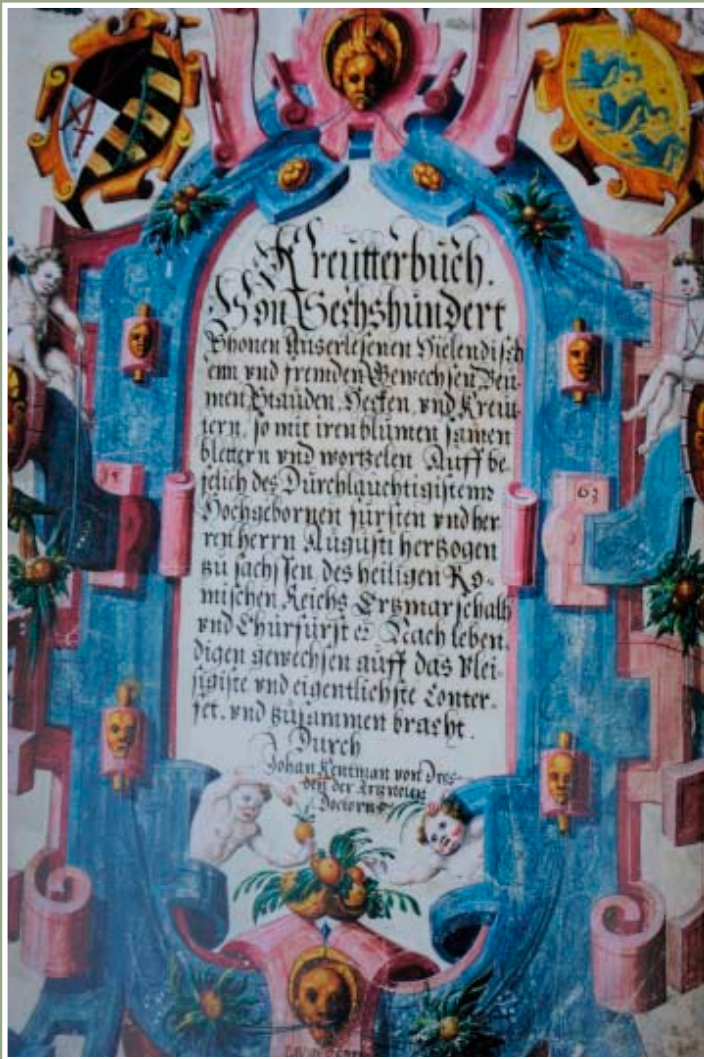 Kreütterbüch.
Von Sechshundert
Schonen Auserlesenen Hielendisch
enn vnd fremden Gewechsen Beu-
men Stauden, Hecken, vnd Kreüt-
tern, so mit iren blümen samen
blettern vnd wortzelen Auff be-
felich des Dürchlaüchtigistenn
Hochgebornen fürsten vnd her
ren herrn Aügüsti hertzogen
zü sachssen des heiligen Ro-
mischen Reichs Ertzmarschalh
vnd Chürfürst Nach leben-
digen gewechsen auff das vlei-
sigiste vnd eigentlichste Conter-
fet. vnd züsammen bracht.
Dürch
Johan Kentman von Dres-
den der Artzneien
Doctorn
63